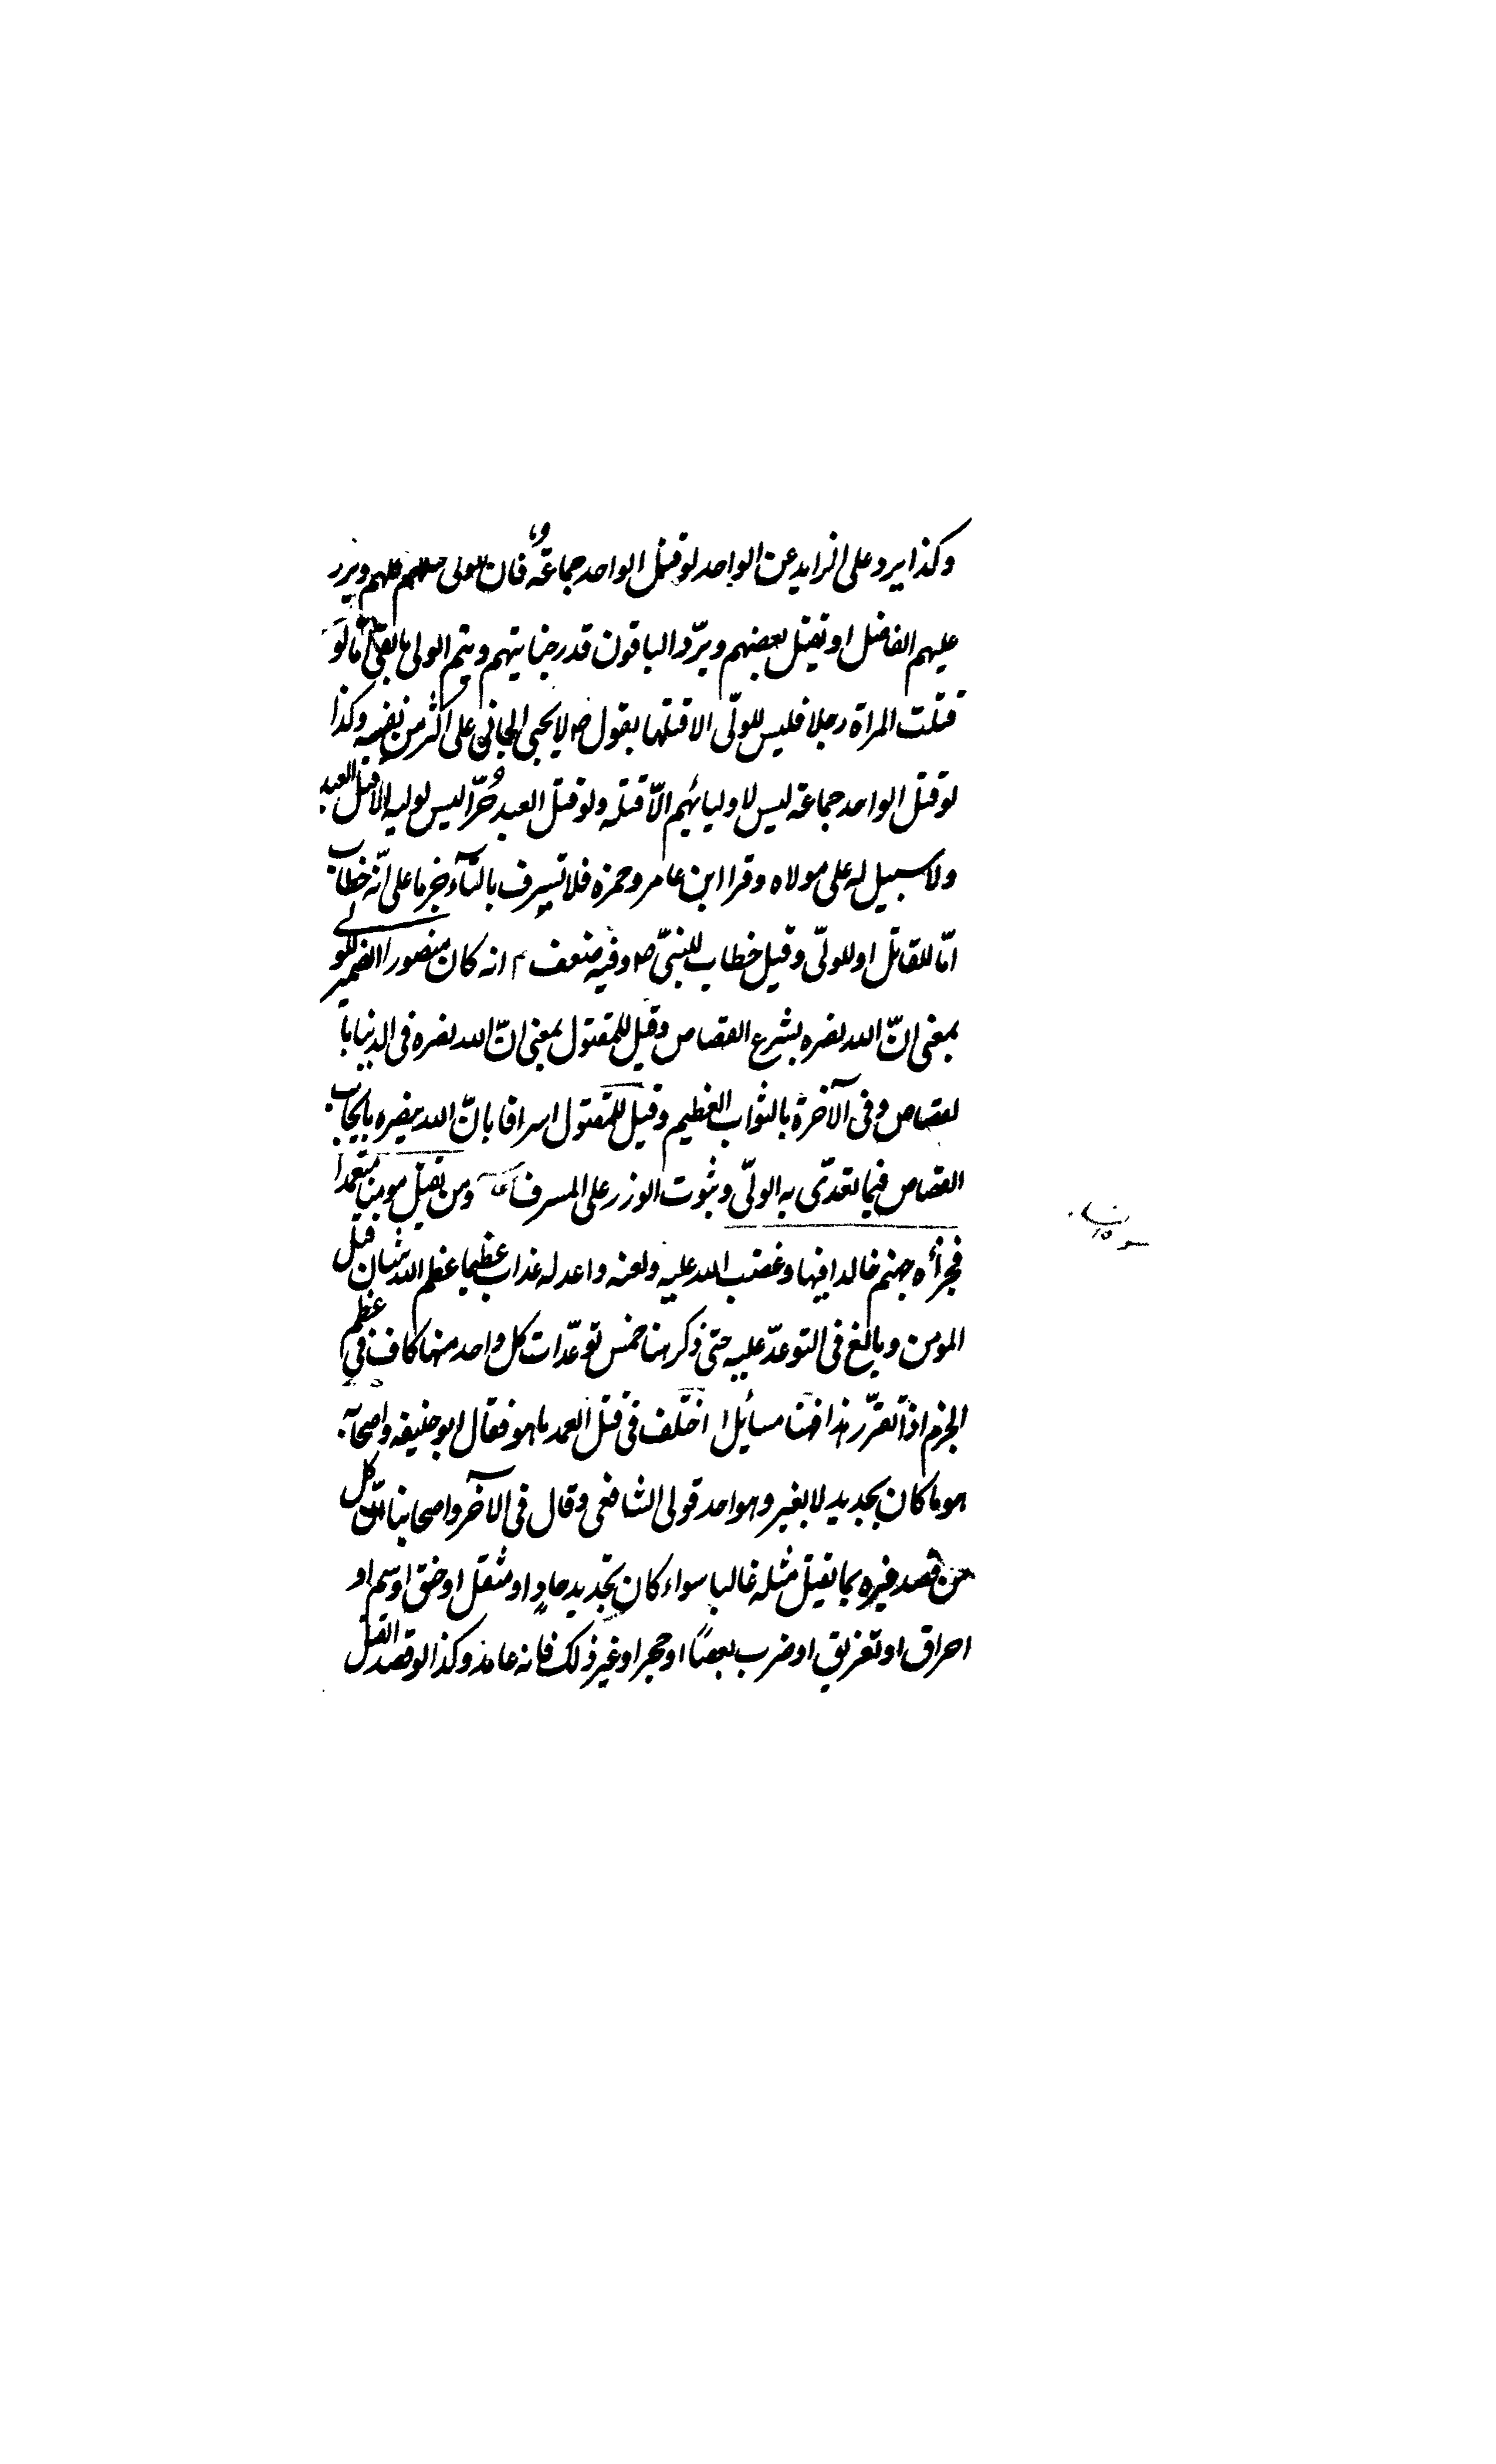 وكذا يرد على الزايد عن الواحد لو قتل الواحد جماعة فان للولى قتلهم كلهم ويرد
عليهم الفاضل او يقتل بعضهم ويردّ الباقون قدر جنايتهم ويتم الولى ما بقى امّا لو
قتلت المراة رجلا فليس للولّى الا قتلها بقوله ص لا يجنى الجانى على اكثر من نفسه وكذا
لو قتل الواحد جماعة ليس لاوليائهم الّا قتله ولو قتل العبد حُرّا ليس لوليه الّا قتل العبد
ولا سبيل له على مولاه وقرا ابن عامر وحمزه فلا تسرف بالتآء جزما على انّه خطاب
امّا للقاتل او للولّى وقيل خطاب للنبىّ ص وفيه ضعف ٣ انه كان منصورا الضمير للولى
بمعنى انّ الله نصره بشرع القصاص وقيل للمقتول بمعنى انّ الله نصره فى الدنيا با
لقصاص وفى الآخرة بالثواب العظيم وقيل للمقتول اسرافا بانّ الله ينصره بايجاب
القصاص فيما تعدّى به الولّى وثبوت الوزر على المسرف ومن يقتل مومنا متعمّدا
فجزاؤه جهنم خالدا فيها وغضب الله عليه ولعنه واعد له عذابا عظيما عظم الله شان قتل
المومن وبالغ فى التوعّد عليه حتى ذكر هنا خمس توعّدات كل واحد منها كاف فى عظم
الجرم اذا تقرّر هذا فهنا مسائل ا اختلف فى قتل العمد ما هو فقال ابو حنيفه واصحابه
هو ما كان بحديد لا بغير وهو احد قولى الشافعى وقال فى الآخر واصحابنا انّ كل
من قصد غيره بما يقتل مثله غالبا سواء كان بحديد حادٍ او مثقل او خنق او سم او
احراق او تغريق او ضرب بعصًا او حجر او غير ذلك فانه عامد وكذا لو قصد القتل